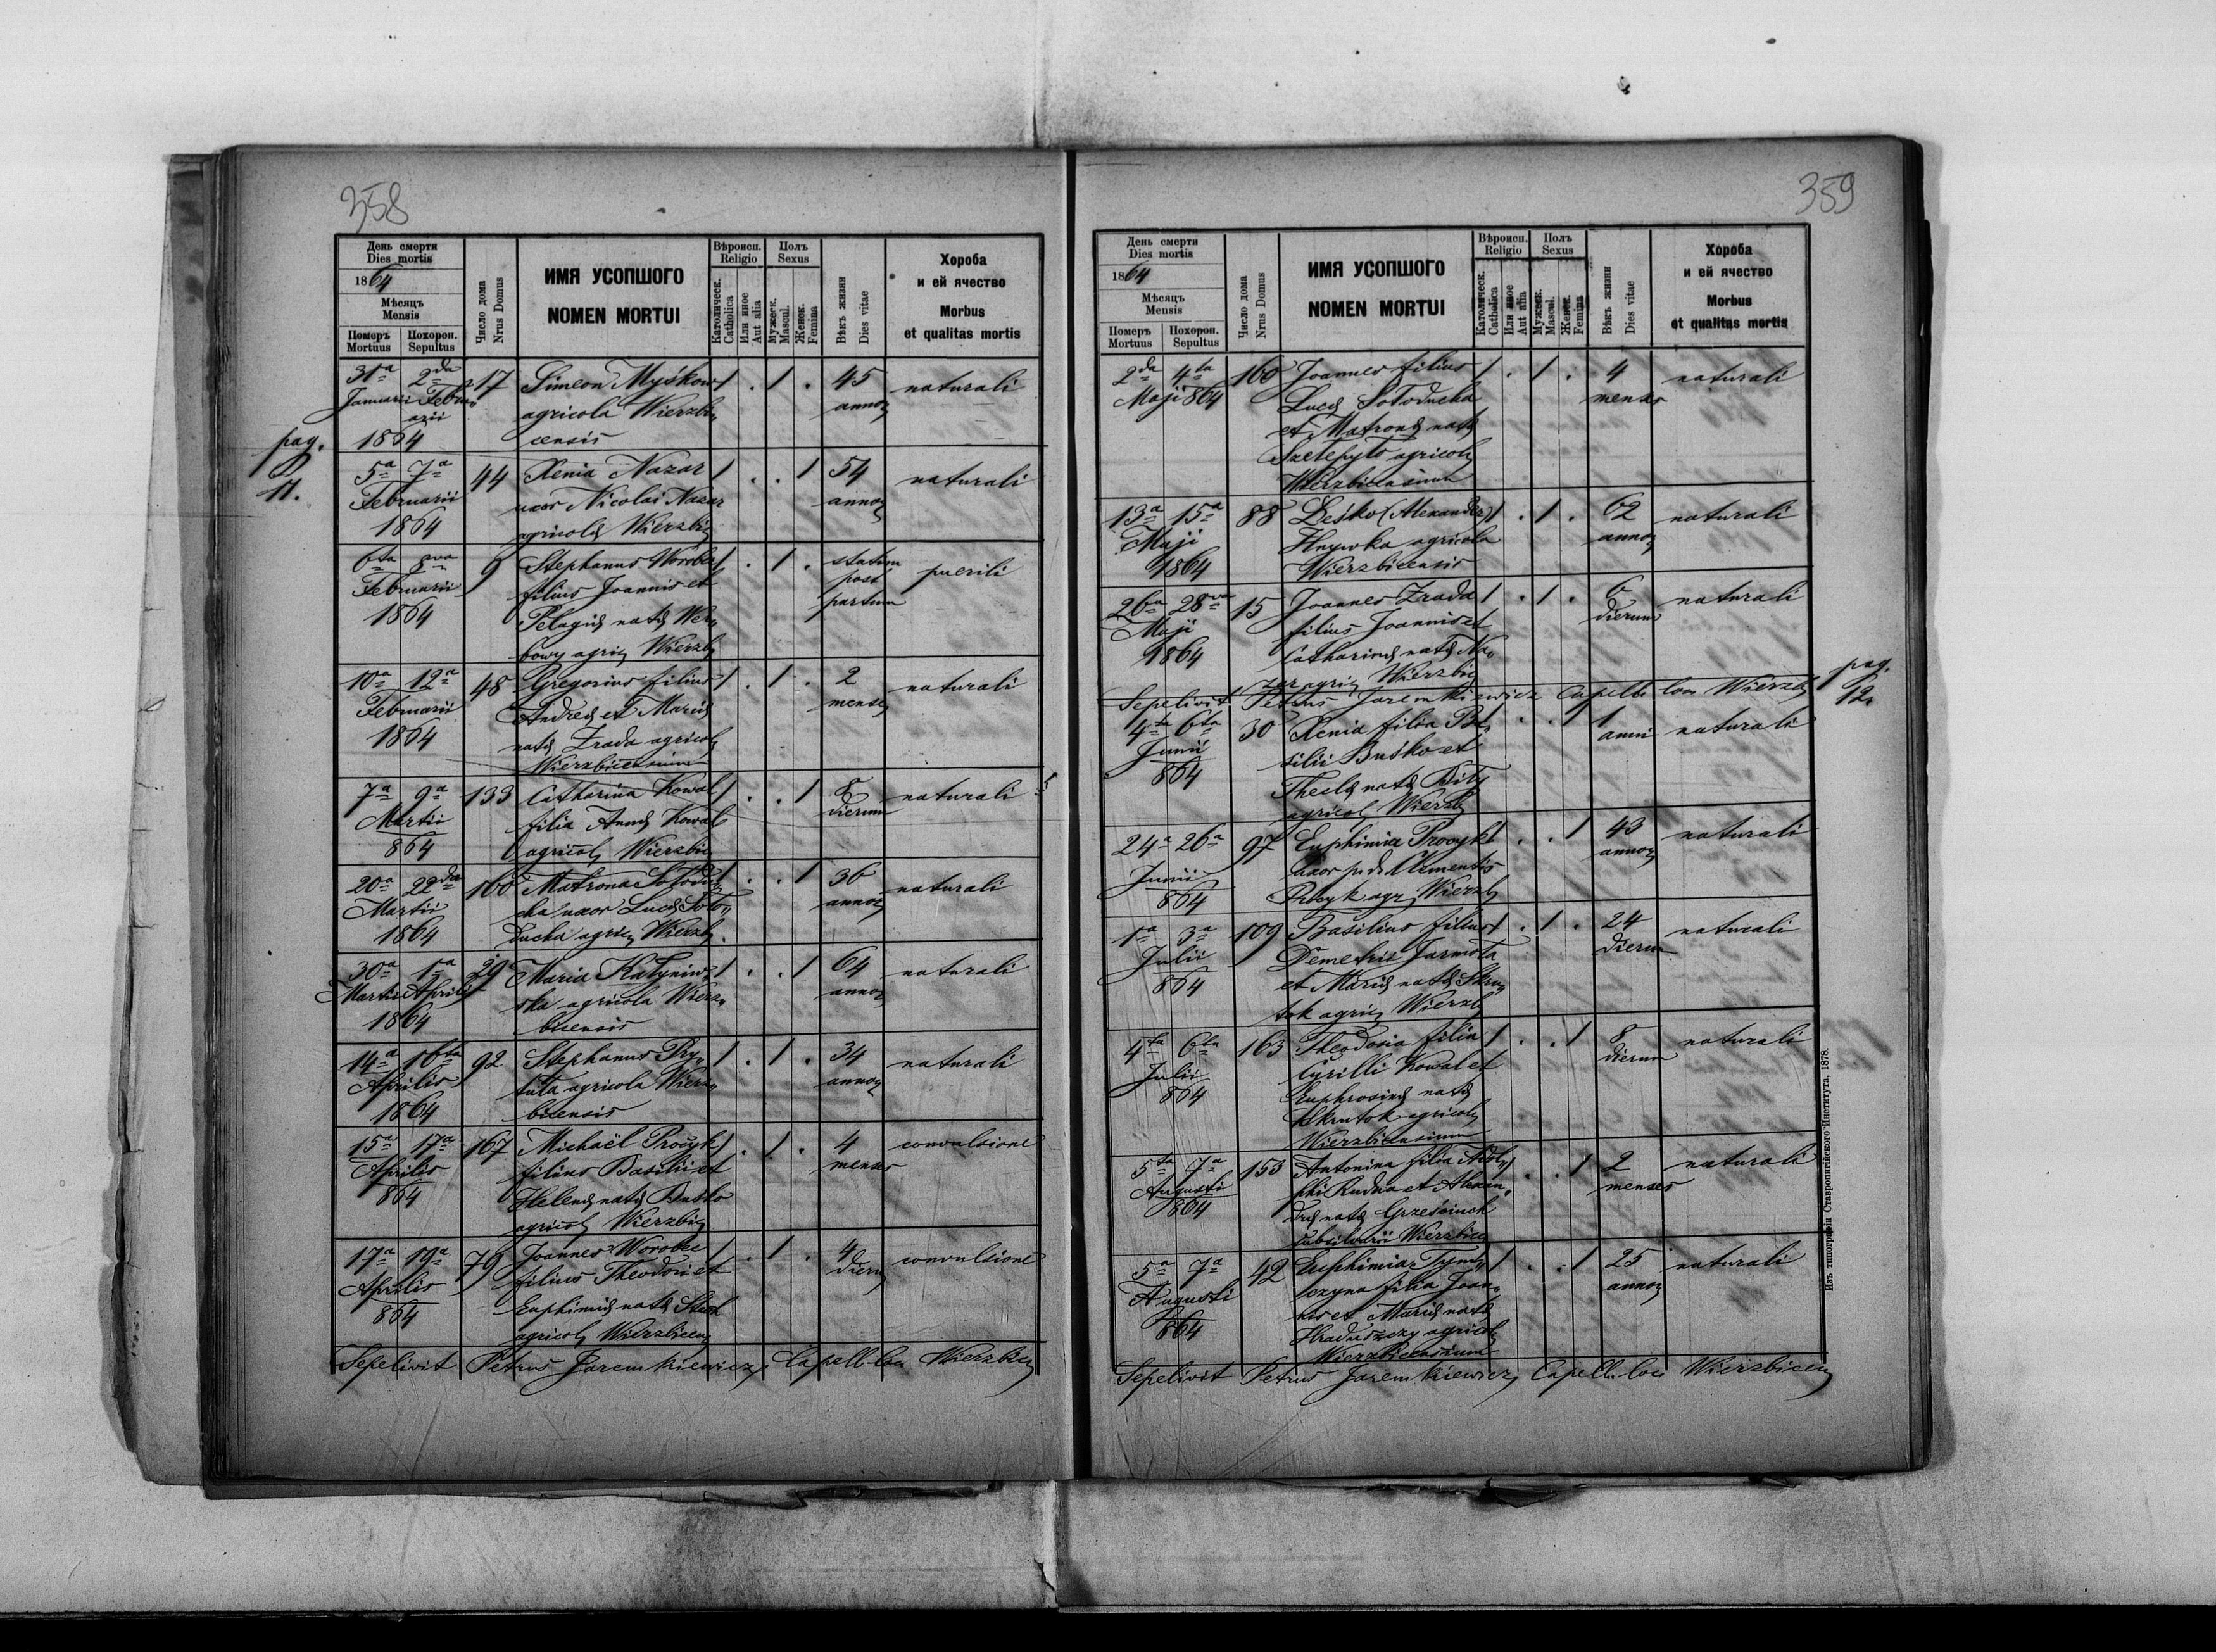 358
День смерти
Dies mortis
1864
Мѣсяцъ
Mensis
Померъ
Mortuus
Похорон.
Sepultus
Число дома
Nrus Domus
ИМЯ УСОПШОГО
NOMEN MORTUI
Вѣроисп.
Religio
Католическ.
Catholica
Или иное
Aut alia
Полъ
Sexus
Мужеск.
Mascul.
Женск.
Femina
Вѣкъ жизни
Dies vitae
Хороба
и ей ячество
Morbus
et qualitas mortis
31a 2da 17 Simeon Myśkow 1 . 1 . 45 naturali
Januarii Febru„ agricola Wierzbi„ annor
arii
1864 censis
pag.
11.
5a 7a 44 Xenia Nazar 1 . . 1 54 naturali
Februarii uxor Nicolai Nazar annor
1864 agricolae Wierzbic
6ta 8va 9 Stephanus Worobec 1 . 1 . statim puerili
Februarii filius Joannis et post
1864 Pelagiae natae Wer„ partum
bowy agric Wierzb
10a 12a 48 Gregorius filius 1 . 1 . 2 naturali
Februarii Andreae et Mariae menses
1864 natae Zrada agricol
Wierzbicensium
7a 9a 133 Catharina Kowal 1 . . 1 8 naturali
Martii filia Annae Kowal dierum
864 agricol Wierzbic
20a 22da 160 Matrona Sołodu„ 1 . . 1 36 naturali
Martii cha uxor Lucae Soło„ annor
1864 ducha agric Wierzb.
30a 1a 29 Maria Kałyniw„ 1 . . 1 64 naturali
Martii Aprilis ska agricola Wierz„ annor
1864 bicensis
14a 16ta 92 Stephanus Pry„ 1 . 1 . 34 naturali
Aprilis tuła agricola Wierz„ annor
1864 bicensis
15a 17a 167 Michaël Procyk 1 . 1 . 4 convulsione
Aprilis filius Basilii et menses
864 Helenae natae Busko
agricol Wierzbic
17a 19a 79 Joannes Worobec 1 . 1 . 4 convulsione
Aprilis filius Theodori et dierum
864 Euphimiae natae
agricol Wierzbicen
Sepelivit Petrus Jaremkiewicz Capell. loci Wierzbicen
359
День смерти
Dies mortis
1864
Мѣсяцъ
Mensis
Померъ
Mortuus
Похорон.
Sepultus
Число дома
Nrus Domus
ИМЯ УСОПШОГО
NOMEN MORTUI
Вѣроисп.
Religio
Католическ.
Catholica
Или иное
Aut alia
Полъ
Sexus
Мужеск.
Mascul.
Женск.
Femina
Вѣкъ жизни
Dies vitae
Хороба
и ей ячество
Morbus
et qualitas mortis
2da 4ta 160 Joannes filius 1 . 1 . 4 naturali
Maji 864 Lucae Sołoducha menses
et Matronae natae
Szełepyło agricol
Wierzbicensium
13a 15a 88 Leśko (Alexander) 1 . 1 . 62 naturali
Maji Hnywka agricola annor
1864 Wierzbicensis
26a 28va 15 Joannes Zrada 1 . 1 . 6 naturali
Maji filius Joannis et dierum
1864 Catharinae natae Na„
zar agric Wierzbic
Sepelivit Petrus Jaremkiewicz Capell. loci Wierzb
pag.
12.
4ta 6ta 30 Xenia filia Ba„ 1 . . 1 1 naturali
Junii silii Busko et anni
864 Theclae natae Biły
agricol Wierzb
24a 26a 97 Euphimia Procyk 1 . . 1 43 naturali
Junii uxor p. d. Clementis annor
864 Procyk agr. Wierzb
1a 3a 109 Basilius filius 1 . 1 . 24 naturali
Julii Demetrii Jarmoła dierum
864 et Mariae natae Skru„
tok agric Wierzb
4ta 6ta 163 Theodosia filia 1 . . 1 8 naturali
Julii Cyrilli Kowal et dierum
864 Euphrosinae natae
Skrutok agricol
Wierzbicensium
5ta 7a 153 Antonina filia Adol„ 1 . . 1 2 naturali
Augusti phi Rudna et Alexan„ menses
864 drae natae Grześciuch
Wierzbicen
5a 7a 42 Euphimia Tym„ 1 . . 1 25 naturali
Augusti oczyna filia Joan„ annor
864 nis et Mariae natae
Hraduszczy agricol
Wierzbicensium
Sepelivit Petrus Jaremkiewicz Capell. loci Wierzbicen
Изъ типографіи Ставропигійского Института, 1878.